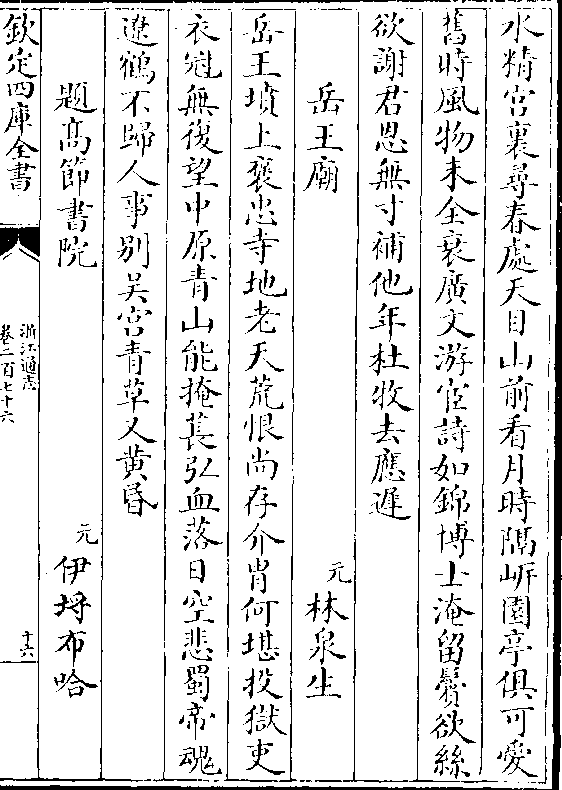 水精宫裏尋春處天目山前看月時隔岍園亭俱可愛
舊時風物未全衰廣文游宦詩如錦博士淹留鬢欲絲
欲謝君恩無寸補他年杜牧去應遲
岳王廟
元林泉生
岳王墳上褒忠寺地老天荒恨尚存介胄何堪投獄吏
衣冠無復望中原青山能掩萇弘血落日空悲蜀帝魂
遼鶴不歸人事别吳宫青草又黄昏
題髙節書院
元伊埒布哈
欽定四庫全書
浙江通志
卷二百七十六
十六